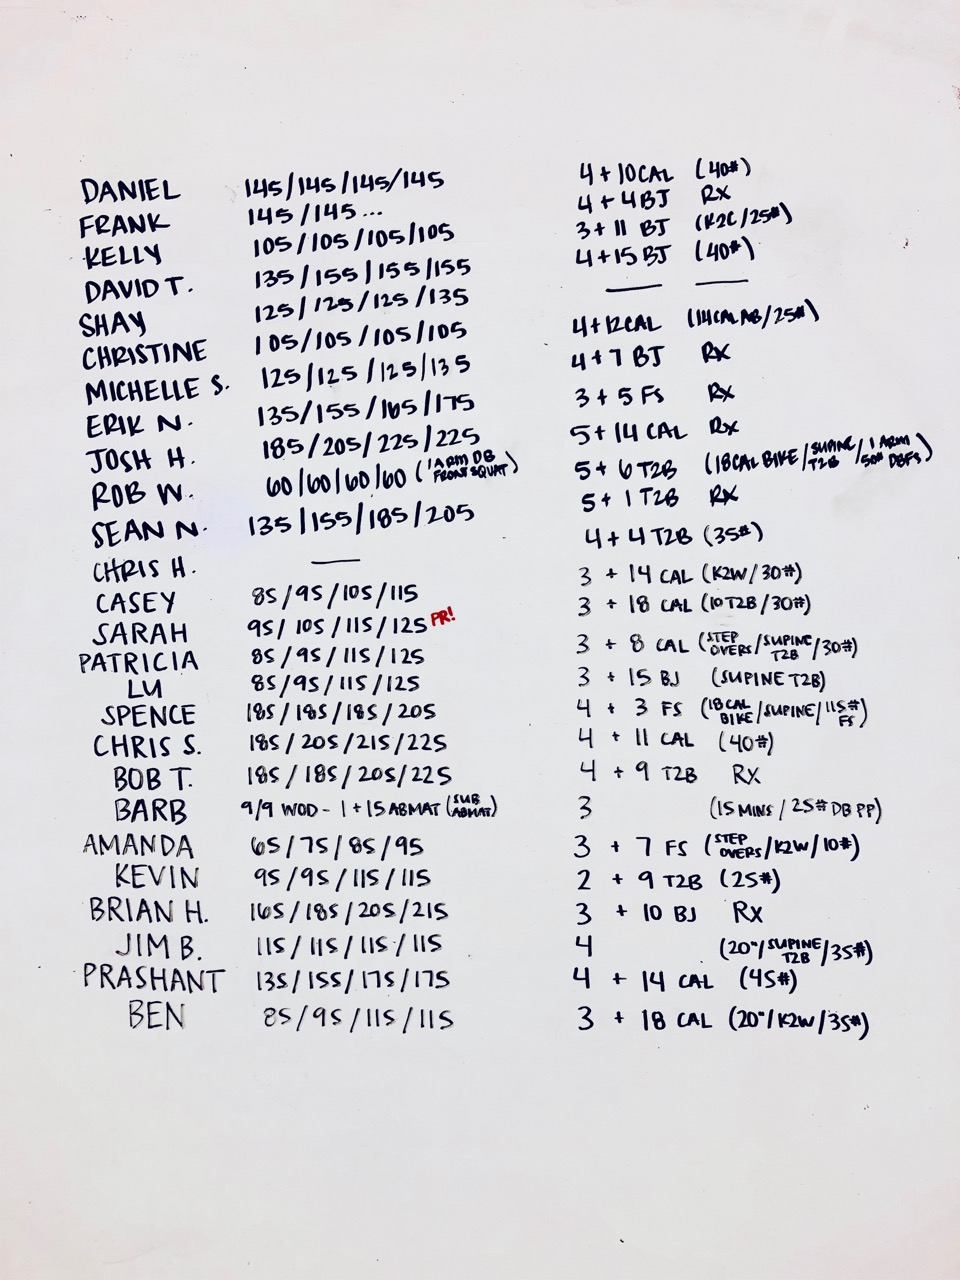 DANIEL 145/145/145/145 4 + 10CAL (40#)
FRANK 145/145... 4 + 4BJ RX
KELLY 105/105/105/105 3 + 11 BJ (K2C/25#)
DAVID T. 135/155/155/155 4 + 15 BJ (40#)
SHAY 125/125/125/135 — —
CHRISTINE 105/105/105/105 4 + 12CAL (14CAL AB/25#)
MICHELLE S. 125/125/125/135 4 + 7 BJ RX
ERIK N. 135/155/165/175 3 + 5 FS RX
JOSH H. 185/205/225/225 5 + 14 CAL RX
ROB W. 60/60/60/60 (1 ARM DB FRONT SQUAT) 5 + 6 T2B (18CAL BIKE/SUPINE T2B/1 ARM 50# DBFS)
SEAN N. 135/155/185/205 5 + 1 T2B RX
CHRIS H. — 4 + 4 T2B (35#)
CASEY 85/95/105/115 3 + 14 CAL (K2W/30#)
SARAH 95/105/115/125 PR! 3 + 18 CAL (10T2B/30#)
PATRICIA 85/95/115/125 3 + 8 CAL (STEP OVERS/SUPINE T2B/30#)
LU 85/95/115/125 3 + 15 BJ (SUPINE T2B)
SPENCE 185/185/185/205 4 + 3 FS (18CAL BIKE/SUPINE/115# FS)
CHRIS S. 185/205/215/225 4 + 11 CAL (40#)
BOB T. 185/185/205/225 4 + 9 T2B RX
BARB 9/9 WOD - 1 + 15 ABMAT (SUB ABMAT) 3 (15 MINS / 25# DB PP)
AMANDA 65/75/85/95 3 + 7 FS (STEP OVERS/K2W/10#)
KEVIN 95/95/115/115 2 + 9 T2B (25#)
BRIAN H. 165/185/205/215 3 + 10 BJ RX
JIM B. 115/115/115/115 4 (20"/SUPINE T2B/35#)
PRASHANT 135/155/175/175 4 + 14 CAL (45#)
BEN 85/95/115/115 3 + 18 CAL (20"/K2W/35#)